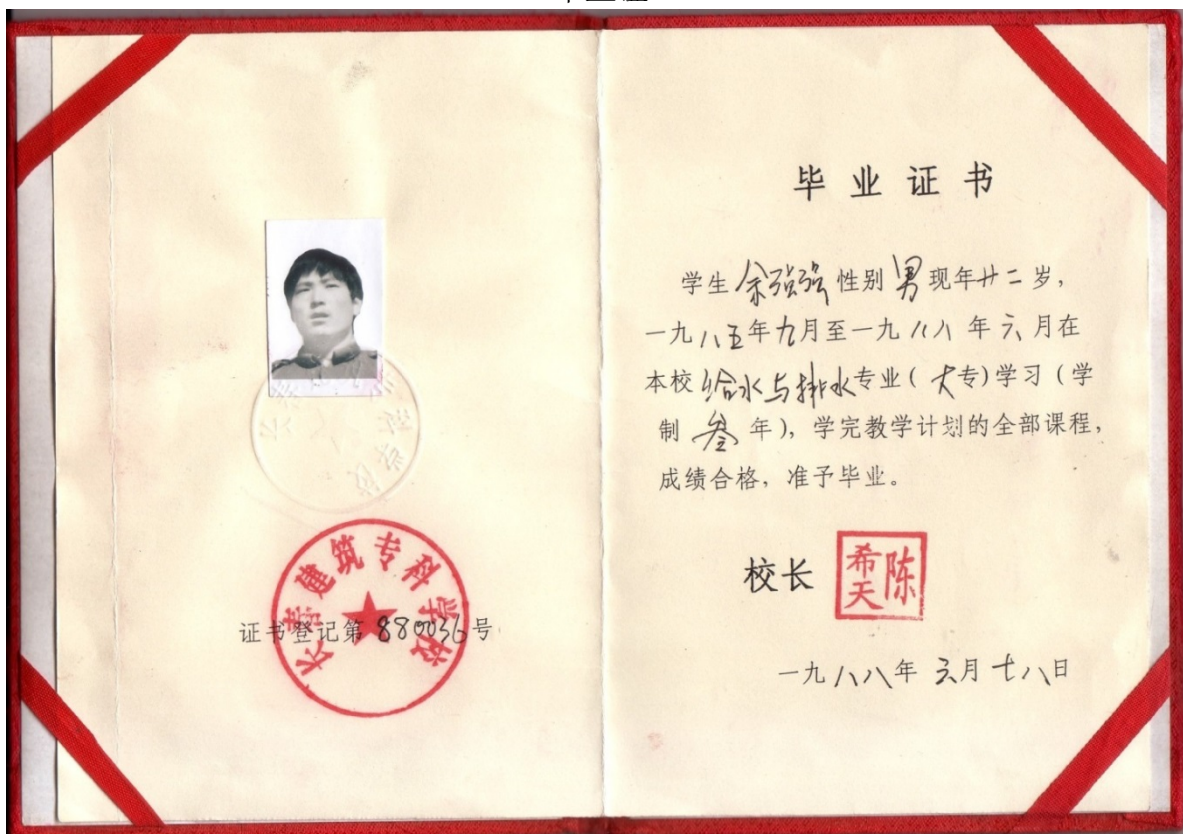 长春建筑专科学校
证书登记第 880036 号
毕业证书
学生 余强强 性别 男 现年廿二岁，
一九八五年九月至一九八八年六月在
本校给水与排水专业（大专）学习（学
制 叁 年），学完教学计划的全部课程，
成绩合格，准予毕业。
校长 陈希天
一九八八年 六月 十八日